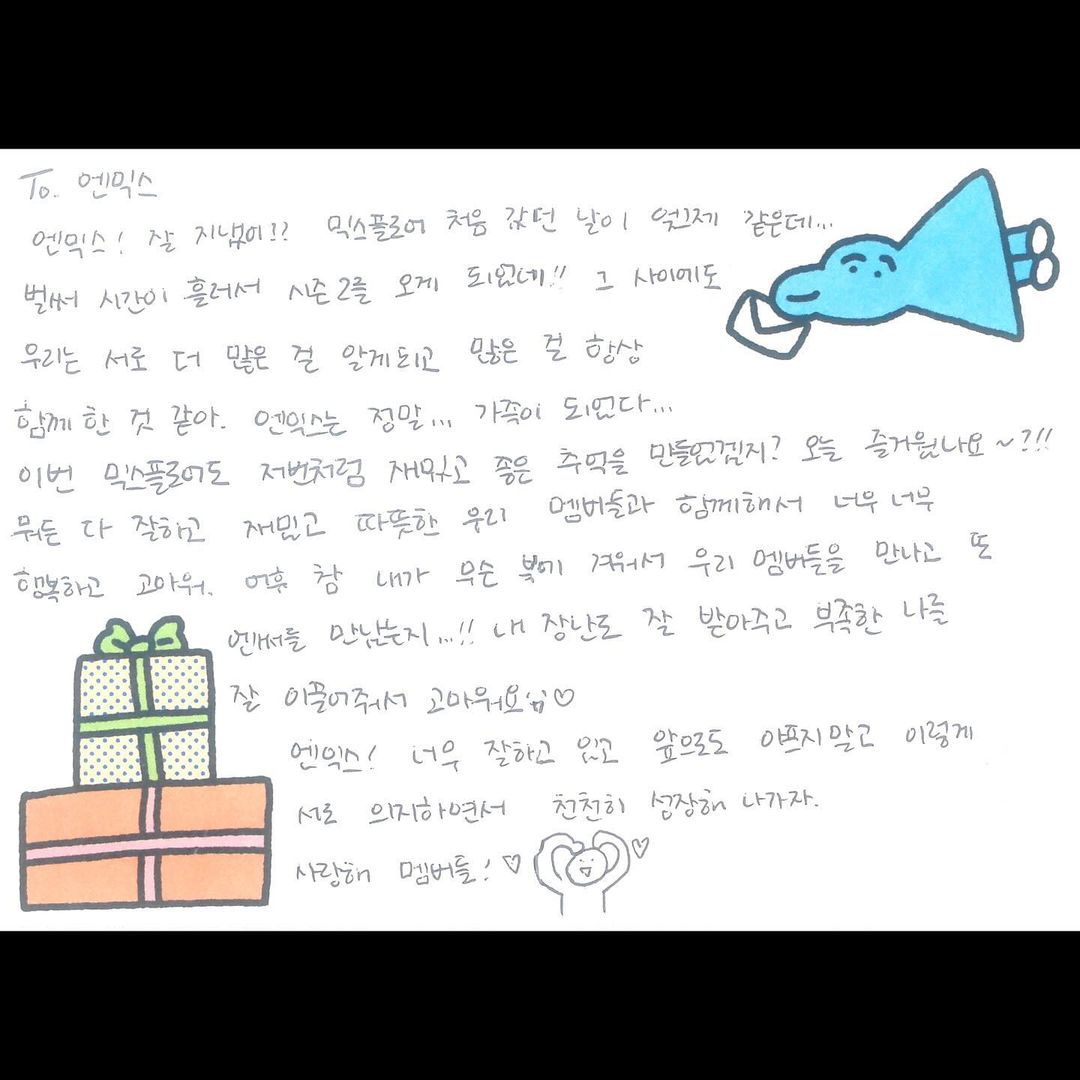 To. 엔믹스
엔믹스! 잘 지냈어!? 믹스플로어 처음 갔던 날이 엊그제 같은데...
벌써 시간이 흘러서 시즌2를 오게 되었네!! 그 사이에도
우리는 서로 더 많은 걸 알게되고 많은 걸 항상
함께 한 것 같아. 엔믹스는 정말... 가족이 되었다...
이번 믹스플로어도 저번처럼 재밌고 좋은 추억을 만들었겠지? 오늘 즐거웠나요~?!!
뭐든 다 잘하고 재밌고 따뜻한 우리 멤버들과 함께해서 너무 너무
행복하고 고마워. 어휴 참 내가 무슨 복에 겨워서 우리 멤버들을 만나고 또
엔써를 만났는지...!! 내 장난도 잘 받아주고 부족한 나를
잘 이끌어줘서 고마워요 ♡
엔믹스! 너무 잘하고 있고 앞으로도 아프지말고 이렇게
서로 의지하면서 천천히 성장해 나가자.
사랑해 멤버들! ♡ ♡